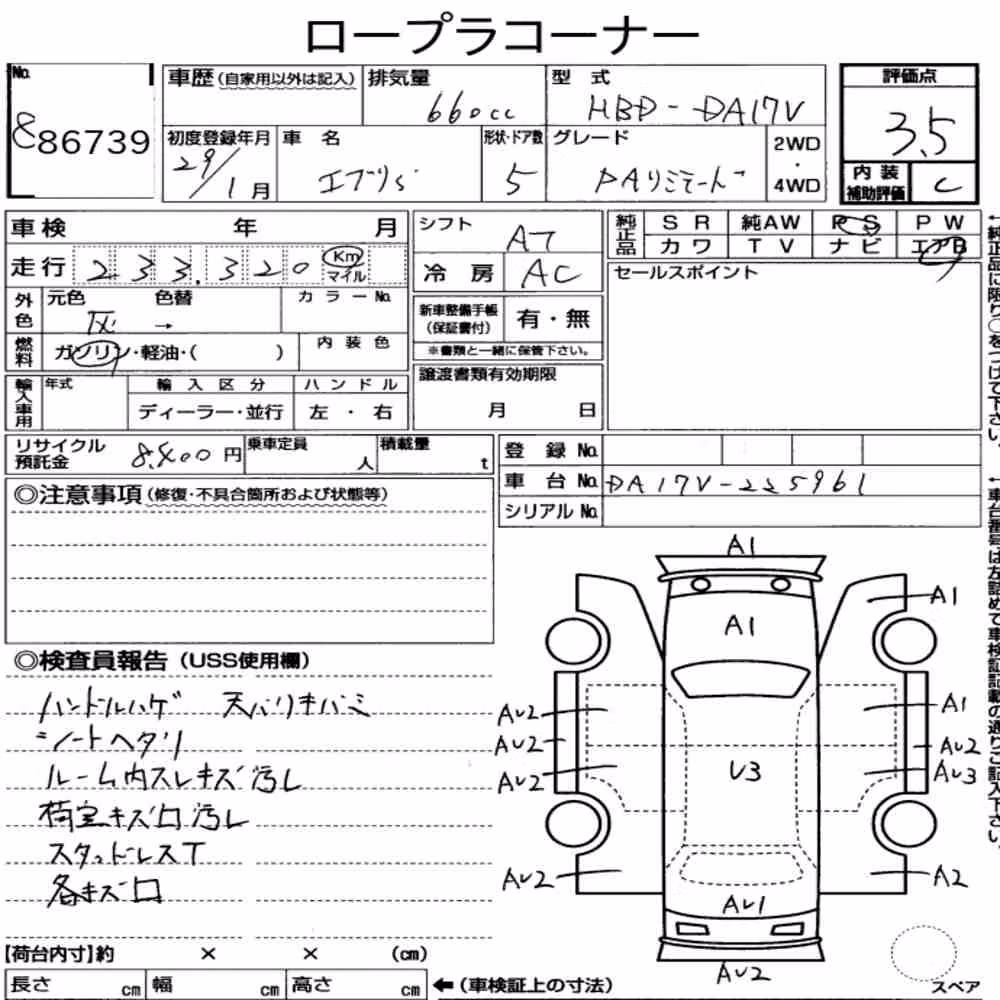 ロープラコーナー
No. 886739
車歴 (自家用以外は記入) 排気量 660cc 型式 HBD-DA17V 評価点 3.5
初度登録年月 29/1月 車名 エブリイ 形状・ドア数 5 グレード PAリミテード 2WD・4WD 内装補助評価 C
車検 年 月
走行 233,320 Km マイル
外色 元色 灰 色替 → カラーNo.
燃料 ガソリン・軽油・( ) 内装色
輸入車用 年式 輸入区分 ディーラー・並行 ハンドル 左・右
シフト AT
冷房 AC
新車整備手帳(保証書付) 有・無
※書類と一緒に保管下さい。
譲渡書類有効期限
月 日
純正品 SR 純AW PS PW
カワ TV ナビ エアB
セールスポイント
リサイクル預託金 8,400円 乗車定員 人 積載量 t
登録No.
車台No. DA17V-225961
シリアルNo.
◎注意事項 (修復・不具合箇所および状態等)
◎検査員報告 (USS使用欄)
ハンドルハゲ 天バリキバミ
シートヘタリ
ルーム内スレキズ汚レ
荷室キズ口汚レ
スタッドレスT
各キズ口
A1
A1
A1
AU2 A1
AU2 AU2
AU2 U3 AU3
AU2 A2
AU1
AU2
スペア
【荷台内寸】約 × × (cm)
長さ cm 幅 cm 高さ cm ←(車検証上の寸法)
←純正品に限り○をつけて下さい。
←車台番号は左詰めで車検証記載の通りご記入下さい。